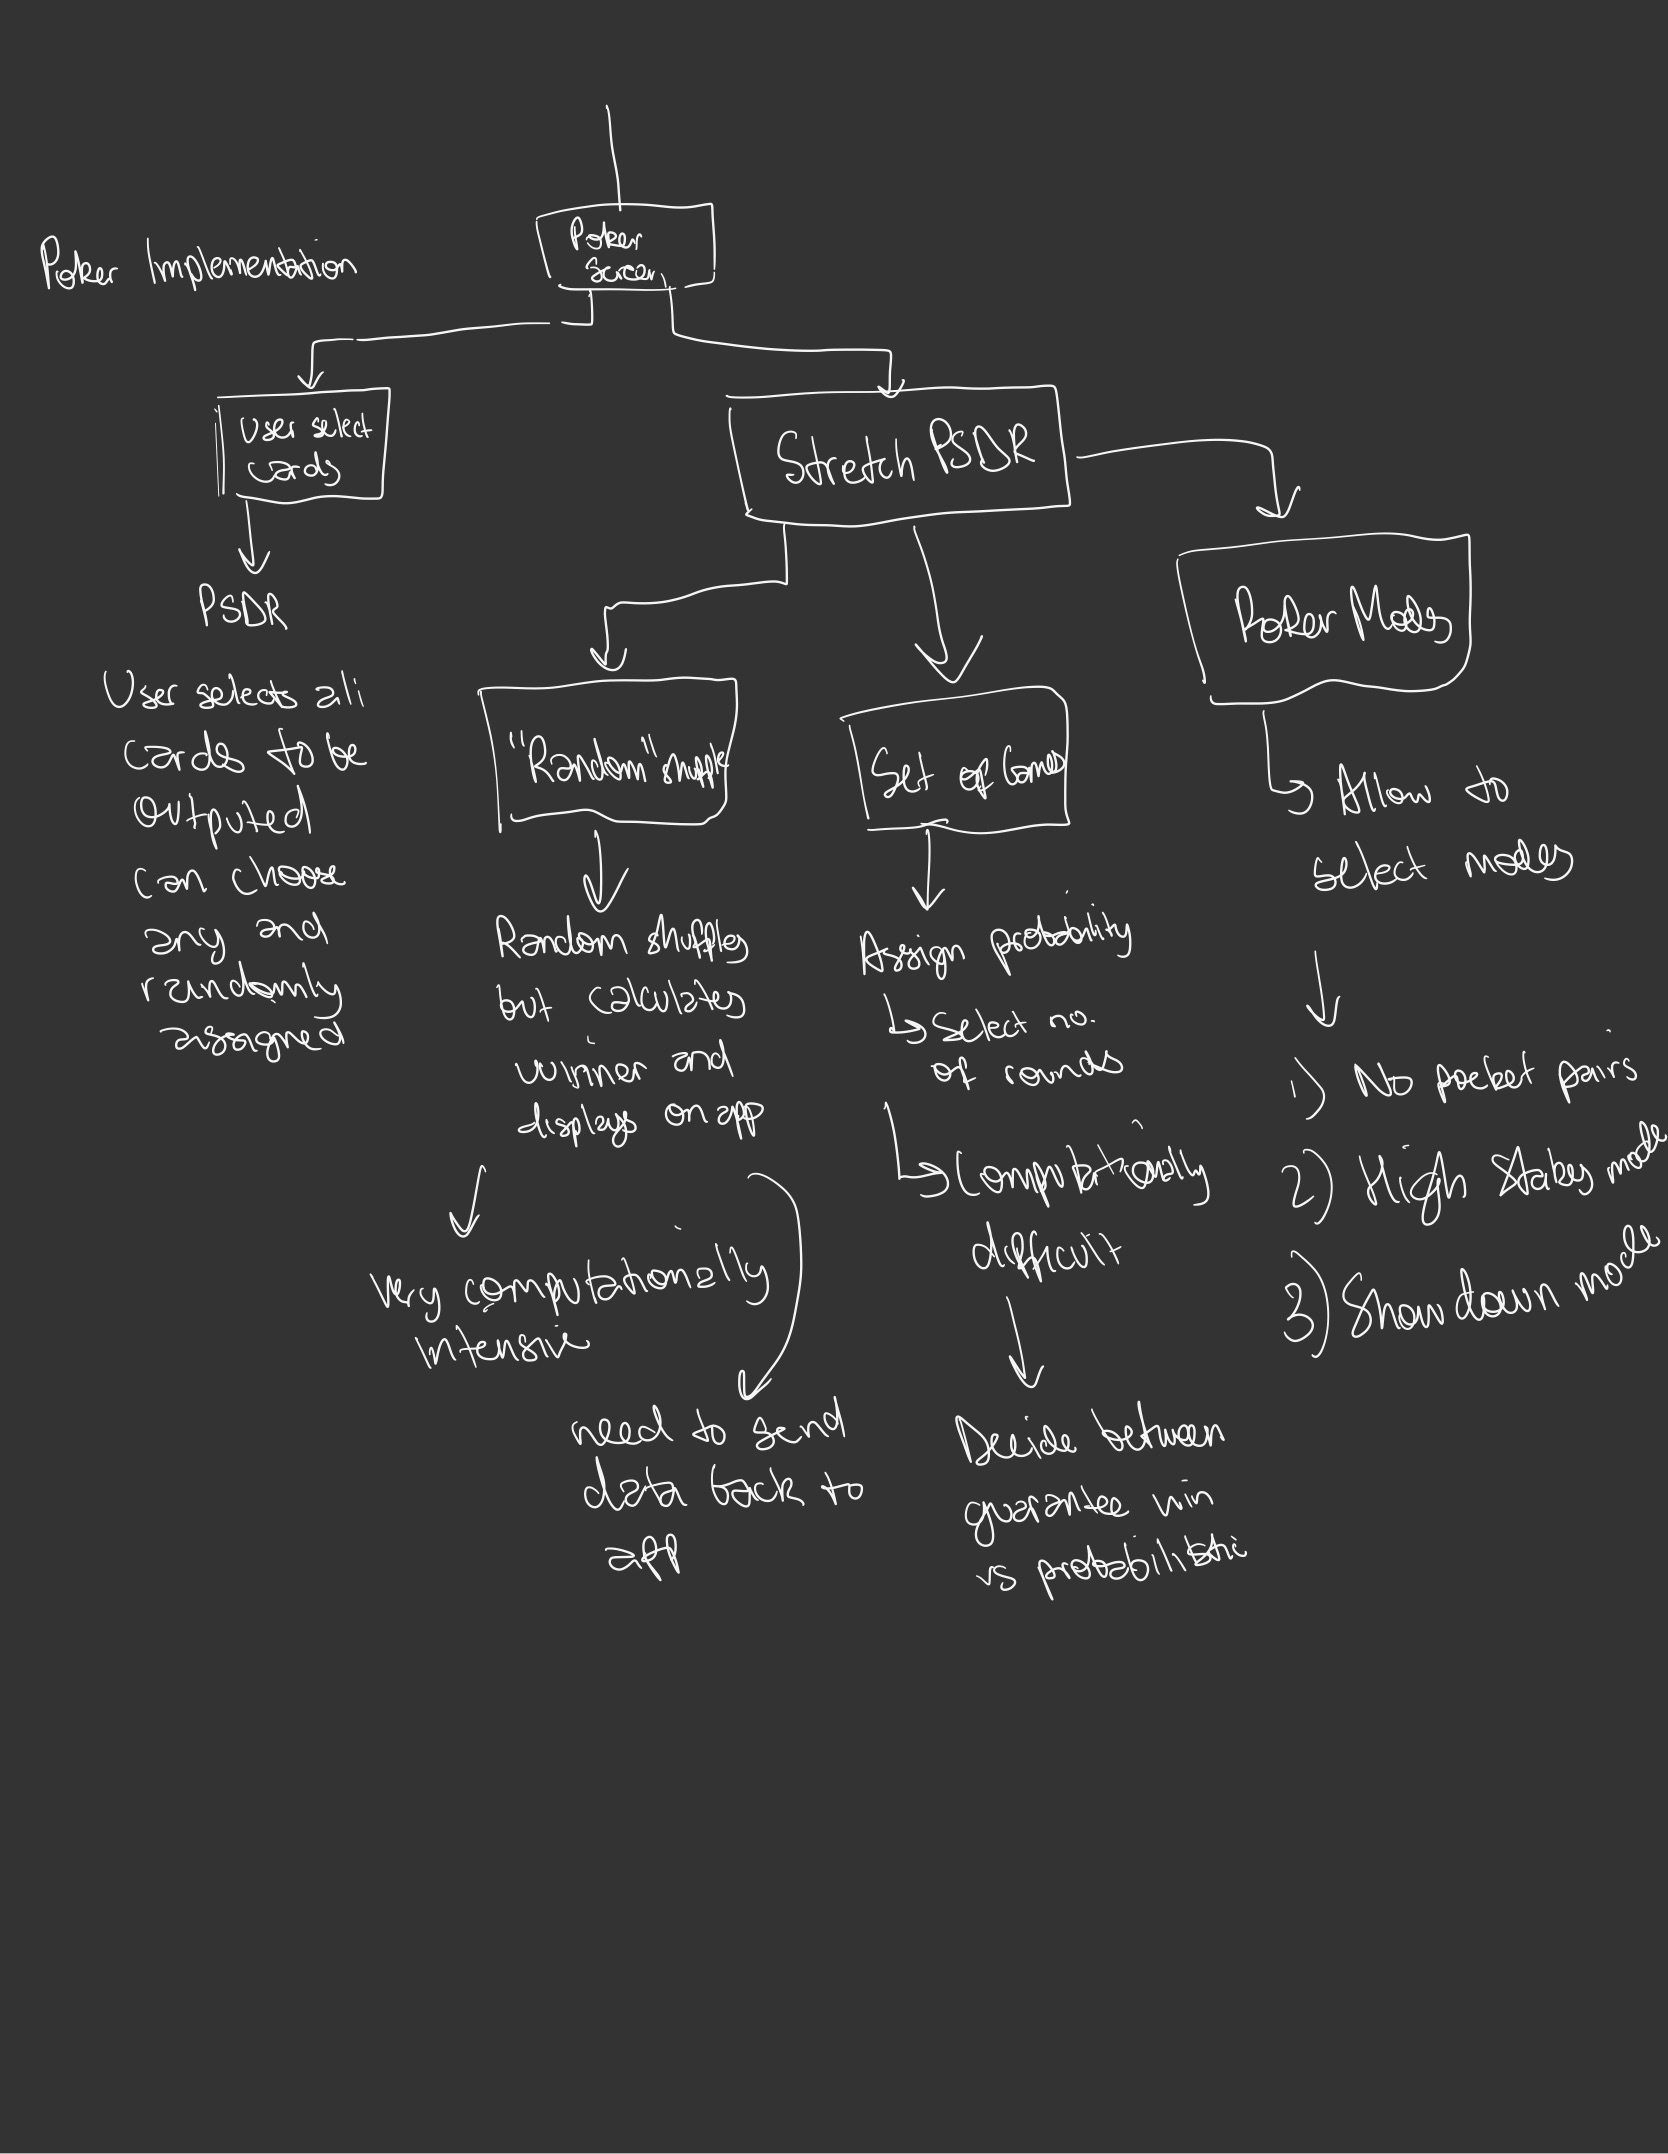 Poker Implementation
Poker
Screen
User select
cards
PSDR
User selects all
cards to be
outputed
can choose
any and
randomly
assigned
Stretch PSDR
"Random" shuffle
Random shuffles
but calculates
winner and
displays on app
very computationally
intensive
need to send
data back to
app
Set of Games
Assign probability
Select no.
of rounds
Computationally
difficult
Decide between
guarantee win
vs probabilistic
Poker Modes
Allow to
select modes
1) No pocket pairs
2) High Stakes mode
3) Showdown mode